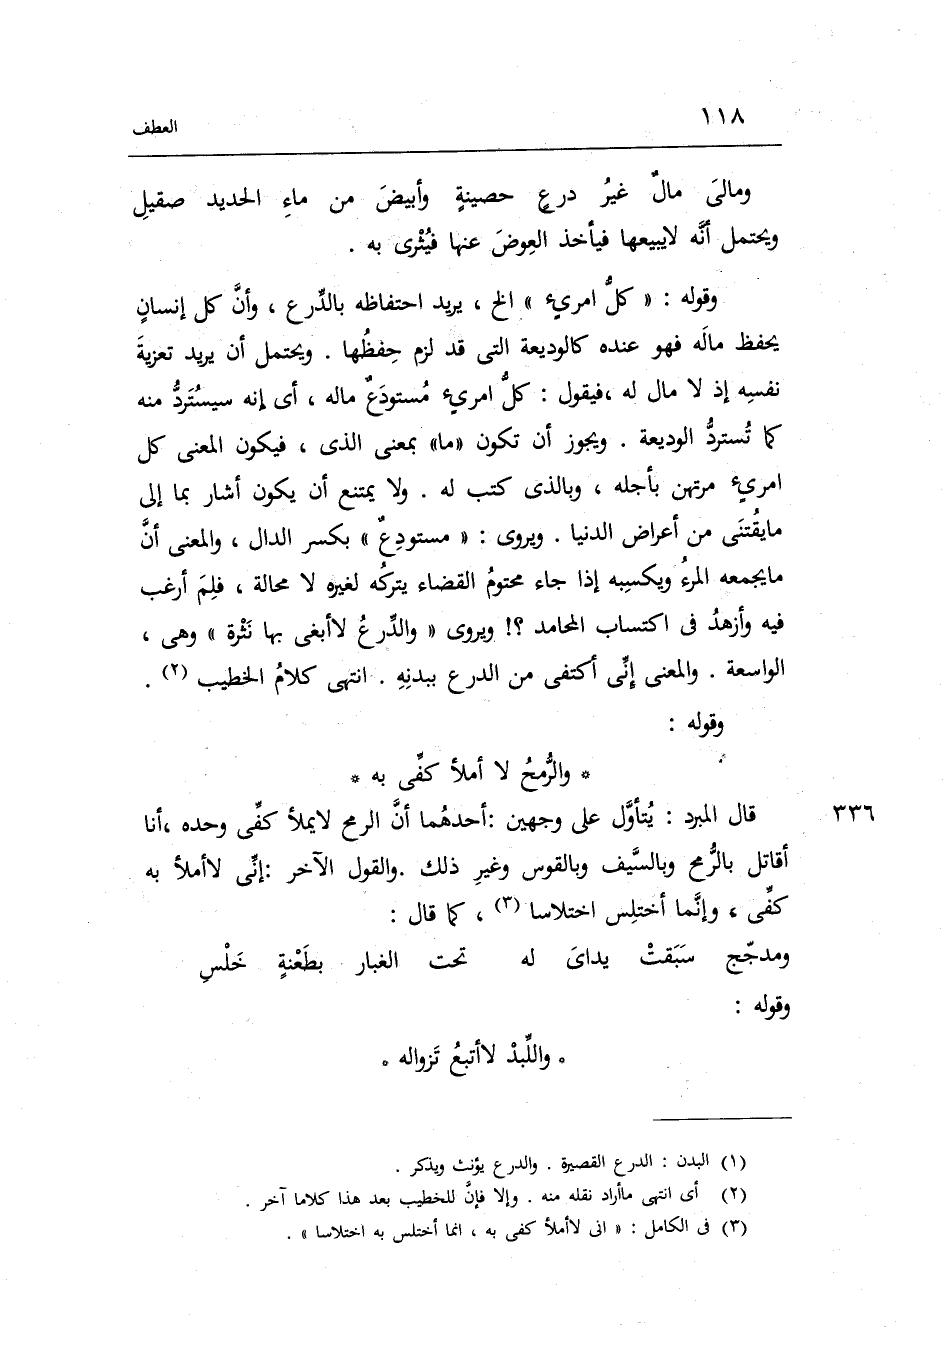 ١١٨
العطف
ومالىَ مالٌ غيرُ درعٍ حصينةٍ وأبيضَ من ماءِ الحديد صقيلِ
ويحتمل أنَّه لايبيعها فيأخذ العِوضَ عنها فيُثْرى به .
وقوله : « كلُّ امرىٍء » الخ ، يريد احتفاظه بالدِّرع ، وأنَّ كل إنسانٍ
يحفظ مالَه فهو عنده كالوديعة التى قد لزم حِفظُها . ويحتمل أن يريد تعزيةَ
نفسِه إذ لا مال له ،فيقول : كلُّ امرىٍء مُستودَعٌ ماله ، أى إنه سيسُتَردُّ منه
كما تُستردُّ الوديعة . ويجوز أن تكون «ما» بمعنى الذى ، فيكون المعنى كل
امرىٍء مرتهن بأجله ، وبالذى كتب له . ولا يمتنع أن يكون أشار بما إلى
مايقُتنَى من أعراض الدنيا . ويروى : « مستودِعٌ » بكسر الدال ، والمعنى أنَّ
مايجمعه المرءُ ويكسِبه إذا جاء محتومُ القضاء يتركُه لغيره لا محالة ، فلِمَ أرغب
فيه وأزهدُ فى اكتساب المحامد ؟! ويروى « والدِّرعُ لاأبغى بها نَثْرة » وهى ،
الواسعة . والمعنى إنِّى أكتفى من الدرع ببدنِهِ . انتهى كلامُ الخطيب (٢) .
وقوله :
* والرُّمحُ لا أملأ كفِّى به *
٣٣٦
قال المبرد : يُتأوَّل على وجهين :أحدهُما أنَّ الرمح لايملأ كفِّى وحده ،أنا
أقاتل بالرُّمح وبالسَّيف وبالقوس وغيرِ ذلك .والقول الآخر :إنِّى لاأملأ به
كفِّى ، وإنَّما أختلِس اختلاسا (٣) ، كما قال :
ومدجّج سَبَقتْ يداىَ له تحت الغبار بطَعْنةٍ خَلْسِ
وقوله :
* واللِّبدْ لاأتبعُ تَزواله *
(١) البدن : الدرع القصيرة . والدرع يؤنث ويذكر .
(٢) أى انتهى ماأراد نقله منه . وإلا فإنَّ للخطيب بعد هذا كلاما آخر .
(٣) فى الكامل : « انى لاأملأ كفى به ، انما أختلس به اختلاسا » .